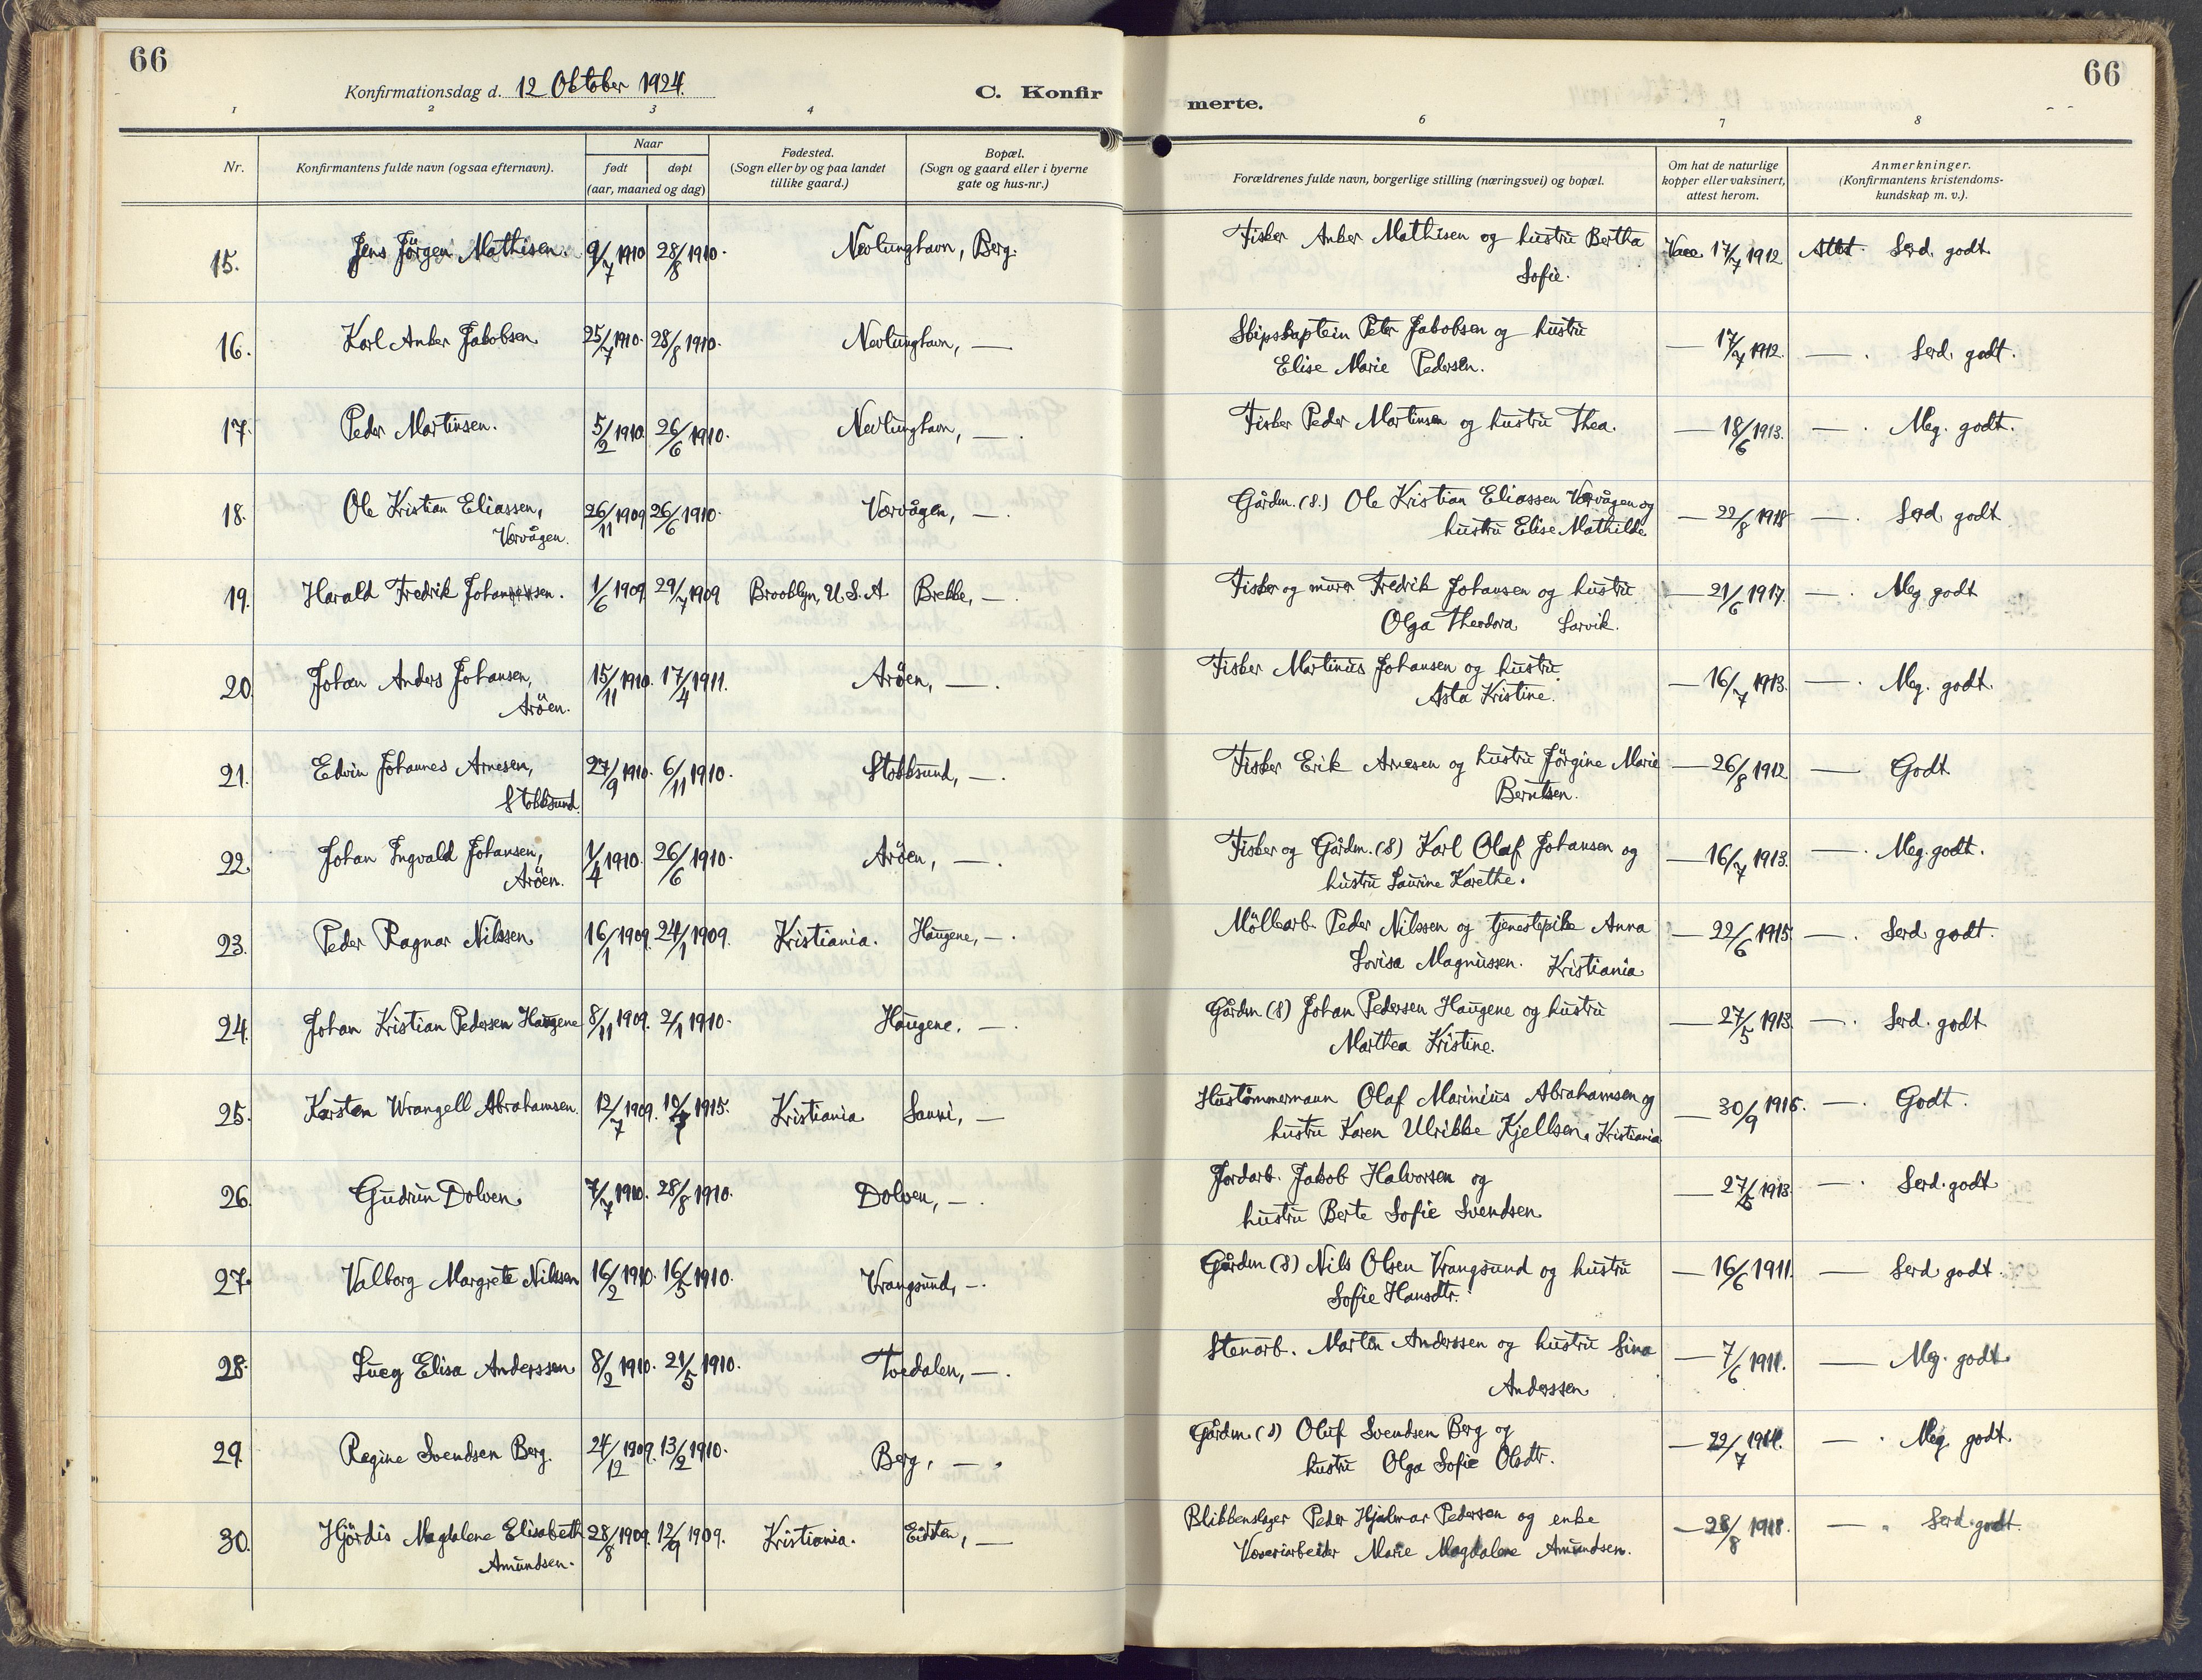 66
66
Konfirmationsdag d. 12 Oktober 1924.
C. Konfir
merte.
1 2 3 4
6 7 8
Nr.
Konfirmantens fulde navn (ogsaa efternavn).
Naar
født
døpt
(aar, maaned og dag)
Fødested.
(Sogn eller by og paa landet
tillike gaard.)
Bopæl.
(Sogn og gaard eller i byerne
gate og hus-nr.)
Forældrenes fulde navn, borgerlige stilling (næringsvei) og bopæl.
Om hat de naturlige
kopper eller vaksinert,
attest herom.
Anmerkninger.
(Konfirmantens kristendoms-
kundskap m. v.).
15. Jens Jörgen Mathisen. 9/7 1910 28/8 1910. Nevlunghavn, Berg. Fisker Anker Mathisen og hustru Bertha Vacc. 17/7 1912 Attst. Serd. godt.
Sofie.
16. Karl Anker Jakobsen. 25/7 1910. 28/8 1910. Nevlunghavn, — Skipskaptein Peter Jakobsen og hustru — 17/7 1912. — . Serd. godt.
Elise Marie Pedersen.
17. Peder Martinsen. 5/2 1910. 26/6 1910. Nevlunghavn, — . Fisker Peder Martinsen og hustru Thea. — 18/6 1913. — . Meg. godt.
18. Ole Kristian Eliassen, 26/11 1909 26/6 1910. Værvågen, — . Gårdm. (S.) Ole Kristian Eliassen Værvågen og — 22/8 1918 — . Serd. godt
Værvågen. hustru Elise Mathilde
19. Harald Fredrik Johansen. 1/6 1909. 29/7 1909 Brooklyn, U.S.A Brekke, — . Fisker og murer Fredrik Johansen og hustru — 21/6 1917. — . Meg godt
Olga Theodora Larvik.
20. Johan Anders Johansen, 15/11 1910. 17/4 1911. Aröen, — . Fisker Martinius Johansen og hustru — 16/7 1913. — . Meg. godt.
Aröen. Asta Kristine.
21. Edvin Johannes Arnesen, 27/9 1910. 6/11 1910. Stokksund, — . Fisker Erik Arnesen og hustru Jörgine Marie — 26/8 1912 — Godt
Stokksund. Berntsen.
22. Johan Ingvald Johansen, 1/4 1910. 26/6 1910. Aröen, — . Fisker og Gårdm. (S) Karl Olaf Johansen og — 16/7 1913. — . Meg. godt.
Aröen. hustru Laurine Karethe.
23. Peder Ragnar Nilssen. 16/1 1909. 24/1 1909. Kristiania. Haugene, — . Möllearb. Peder Nilssen og tjenestepike Anna — 22/6 1915. — . Serd godt.
Lovisa Magnussen. Kristiania
24. Johan Kristian Pedersen Haugene 8/11 1909. 2/1 1910. Haugene, — . Gårdm (S) Johan Pedersen Haugene og hustru — 27/5 1913. — . Serd. godt
Marthea Kristine.
25. Karsten Wrangell Abrahamsen. 12/7 1909. 1915. Kristiania Sauni, — Hustömmermann Olaf Marinius Abrahamsen og — 30/9 1916. — . Godt.
hustru Karen Ulrikke Kjellsen, Kristiania
26. Gudrun Dolven. 7/7 1910. 28/8 1910. Dolven, — . Jordarb. Jakob Halvorsen og — 27/5 1913. — . Serd. godt
hustru Berte Sofie Svendsen
27. Valborg Margrete Nilssen 16/2 1910. 16/5 1910. Vrangsund, — . Gårdm (S) Nils Olsen Vrangsund og hustru — 16/6 1911. — Serd godt.
Sofie Hansdtr.
28. Lucy Elisa Anderssen 8/2 1910. 21/5 1910. Tvedalen, — . Stenarb. Martin Anderssen og hustru Sina — 7/6 1911. — Meg. godt.
Anderssen
29. Regine Svendsen Berg. 24/12 1909. 13/2 1910. Berg, — . Gårdm. (S) Oluf Svendsen Berg og — 22/7 1914. — . Meg. godt.
hustru Olga Sofie Olsdtr.
30. Hjördis Magdalene Elisabeth 28/8 1909. 12/9 1909. Kristiania. Eidsten, — Blikkenslager Peder Hjalmar Pedersen og enke — 28/8 1918. — . Serd. godt.
Amundsen. Væveriarbeider Marie Magdalene Amundsen.